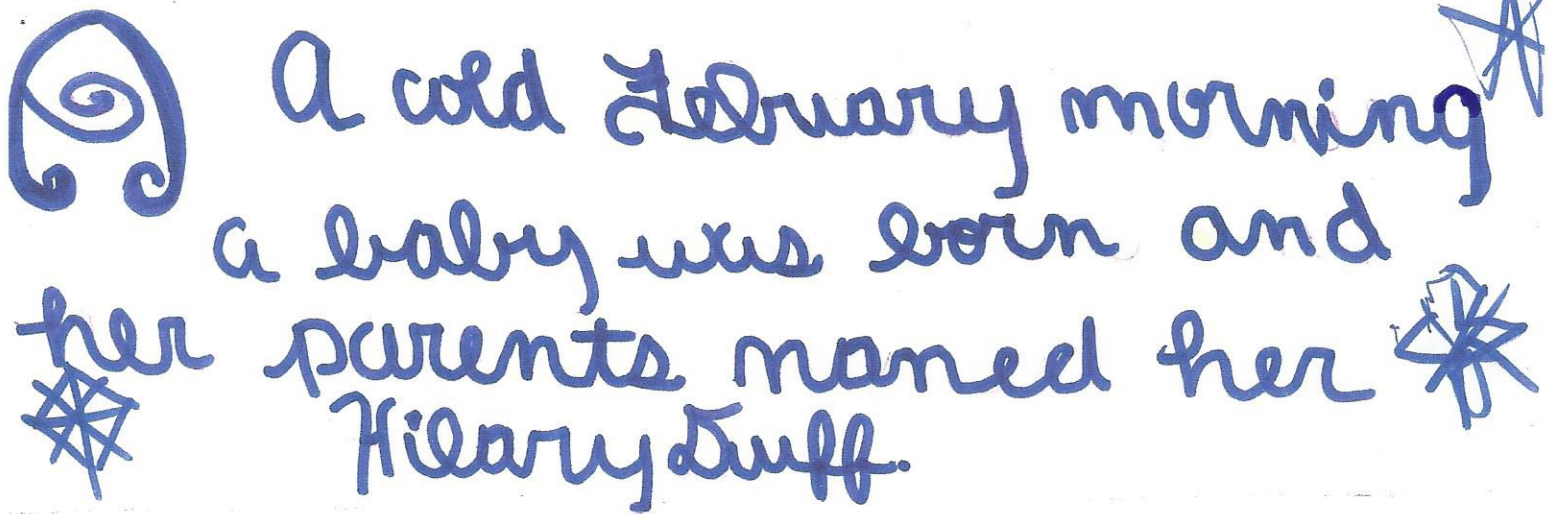 A cold February morning
a baby was born and
her parents naned her
Hilary Duff.